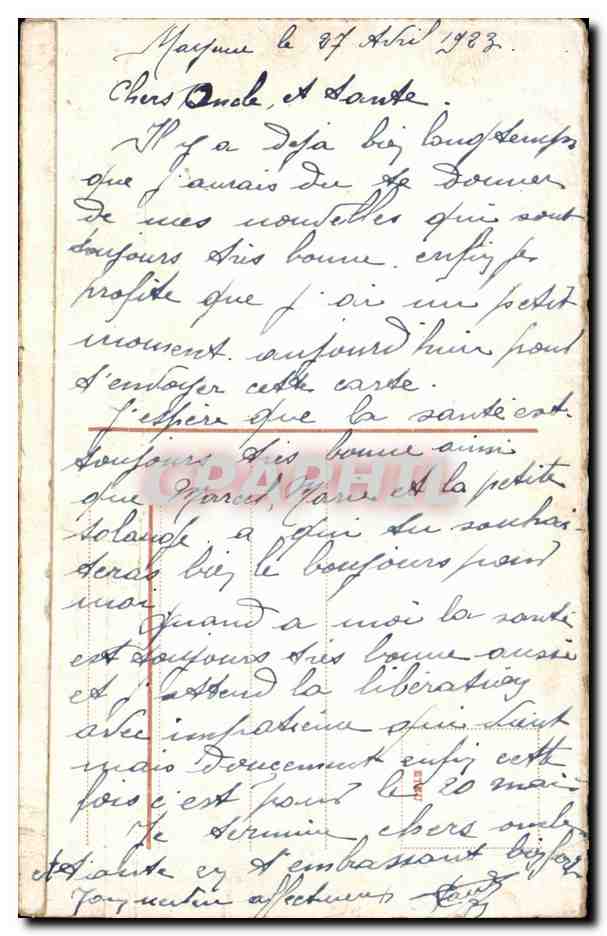 le 27 Avril 1923.
Chers Oncle, et tante.
Il y a déjà bien longtemps
que j'aurais du te donner
de mes nouvelles qui sont
toujours très bonne. enfin je
profite que j'ai un petit
moment aujourd'hui pour
t'envoyer cette carte.
J'espère que la santé est
toujours très bonne ainsi
que Marcel, Marie et la petite
Solange a qui tu souhai-
teras bien le bonjours pour
moi
Quand a moi la santé
est toujours très bonne aussi
et j'attend la libération
avec impatience qui vient
mais doucement enfin cette
fois c'est pour le 20 mai
Je termine chers oncle
et tante en t'embrassant bien fort
neveu affectueux
CPARPHIL